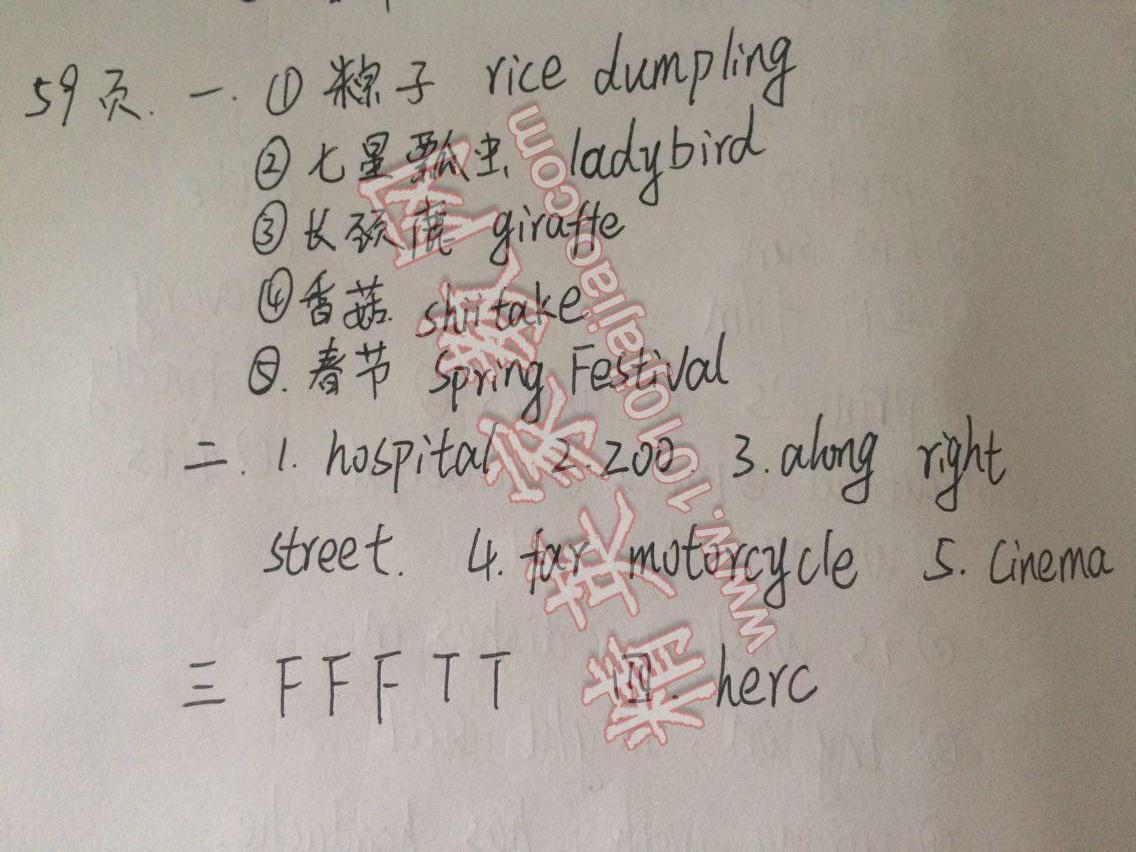 59页. 一. ① 粽子 rice dumpling
② 七星瓢虫 ladybird
③ 长颈鹿 giraffe
④ 香菇 shiitake
⑤. 春节 Spring Festival
二. 1. hospital 2. 200 3. along right
street. 4. far motorcycle 5. Cinema
三 F F F T T 四. herc
精英家教网
www.1010jiajiao.com